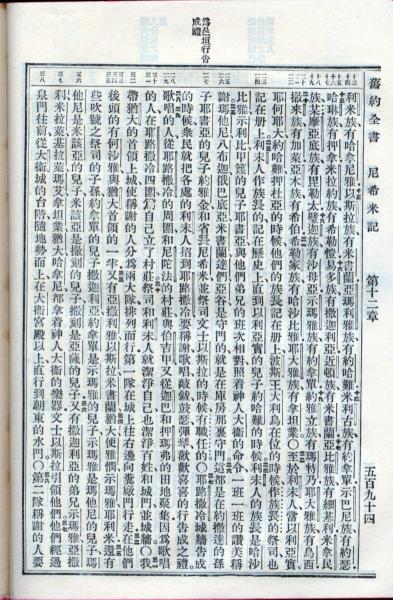 舊約全書 尼希米記 第十二章 五百九十四
利米族有哈拿尼雅以斯拉族有米書蘭亞瑪利雅族有約哈難米利古族有約拿單示巴尼族有約瑟
哈琳族有押拿米拉約族有希勒愷易多族有撒迦利亞近頓族有米書蘭亞比雅族有細基利米拿民
族某摩亞底族有毘勒太璧迦族有沙母亞示瑪雅族有約拿單約雅立族有瑪特乃耶大雅族有烏西
撒來族有加萊亞木族有希伯希勒家族有哈沙比雅耶大雅族有拿坦業〇至於利未人當以利亞實
耶何耶大約哈難押杜亞的時候他們的族長記在册上波斯王大利烏在位的時候作族長的祭司也
記在册上利未人作族長的記在歷史上直到以利亞實的兒子約哈難的時候利未人的族長是哈沙
比雅示利比甲篾的兒子耶書亞與他們弟兄的班次相對照着神人大衛的命令一班一班的讚美稱
謝瑪他尼八布迦俄巴底亞米書蘭達們亞谷是守門的就是在庫房那裏守門這都是在約撒達的孫
子耶書亞的兒子約雅金和省長尼希米並祭司文士以斯拉的時候有職任的〇耶路撒冷城牆告成
的時候衆民就把各處的利未人招到耶路撒冷要稱謝歌唱敲鈸鼓瑟彈琴歡歡喜喜的行告成之禮
歌唱的人從耶路撒冷的周圍和尼陀法的村莊與伯吉甲又從迦巴和押瑪弗的田地聚集因爲歌唱
的人在耶路撒冷周圍爲自己立了村莊祭司和利未人就潔淨自己也潔淨百姓和城門並城牆〇我
帶猶大的首領上城使稱謝的人分爲兩大隊排列而行第一隊在城上往右邊向糞廠門行走在他們
後頭的有何沙雅與猶大首領的一半又有亞撒利雅以斯拉米書蘭猶大便雅憫示瑪雅耶利米還有
些吹號之祭司的子孫約拿單的兒子撒迦利亞約拿單是示瑪雅的兒子示瑪雅是瑪他尼的兒子瑪
他尼是米該亞的兒子米該亞是撒刻的兒子撒刻是亞薩的兒子又有撒迦利亞的弟兄示瑪雅亞撒
利米拉萊基拉萊瑪艾拿坦業猶大哈拿尼都拿着神人大衛的樂器文士以斯拉引領他們他們經過
泉門往前從大衛城的台階隨地勢而上在大衛宮殿以上直行到朝東的水門〇第二隊稱謝的人要
爲邑垣行告
成禮